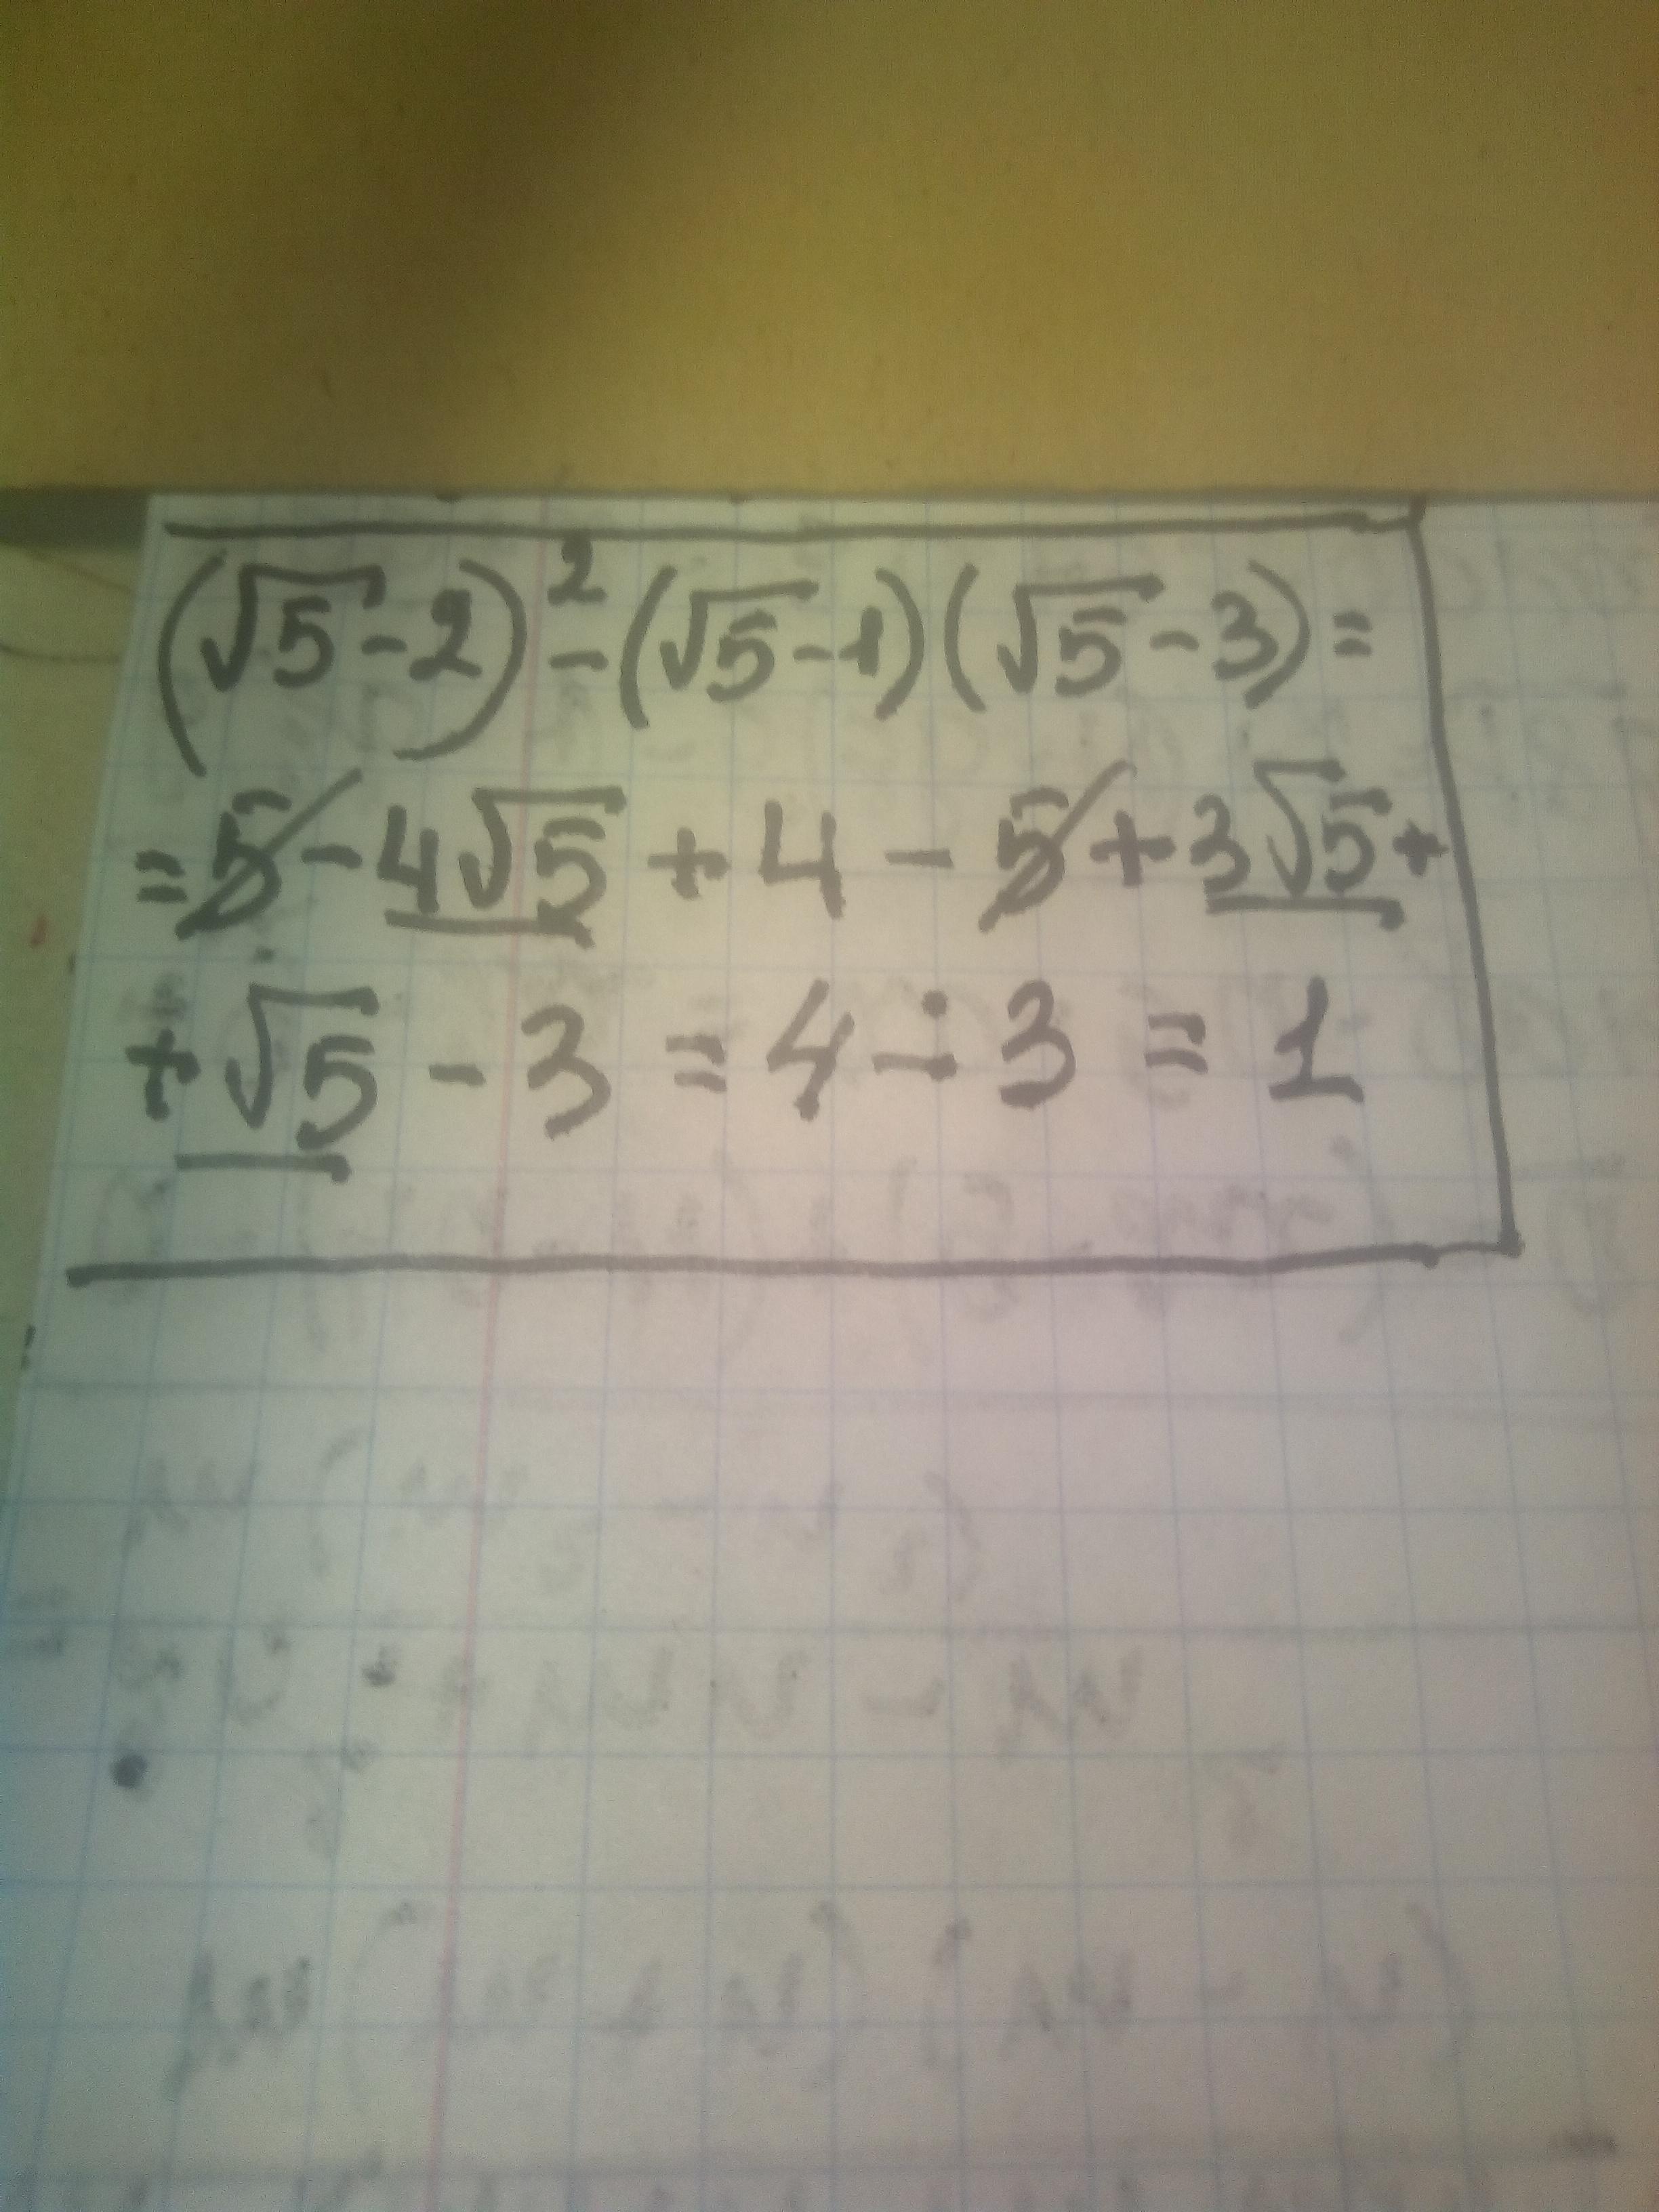 (√5-2)²-(√5-1)(√5-3)=
=5-4√5+4-5+3√5+
+√5-3=4-3=1